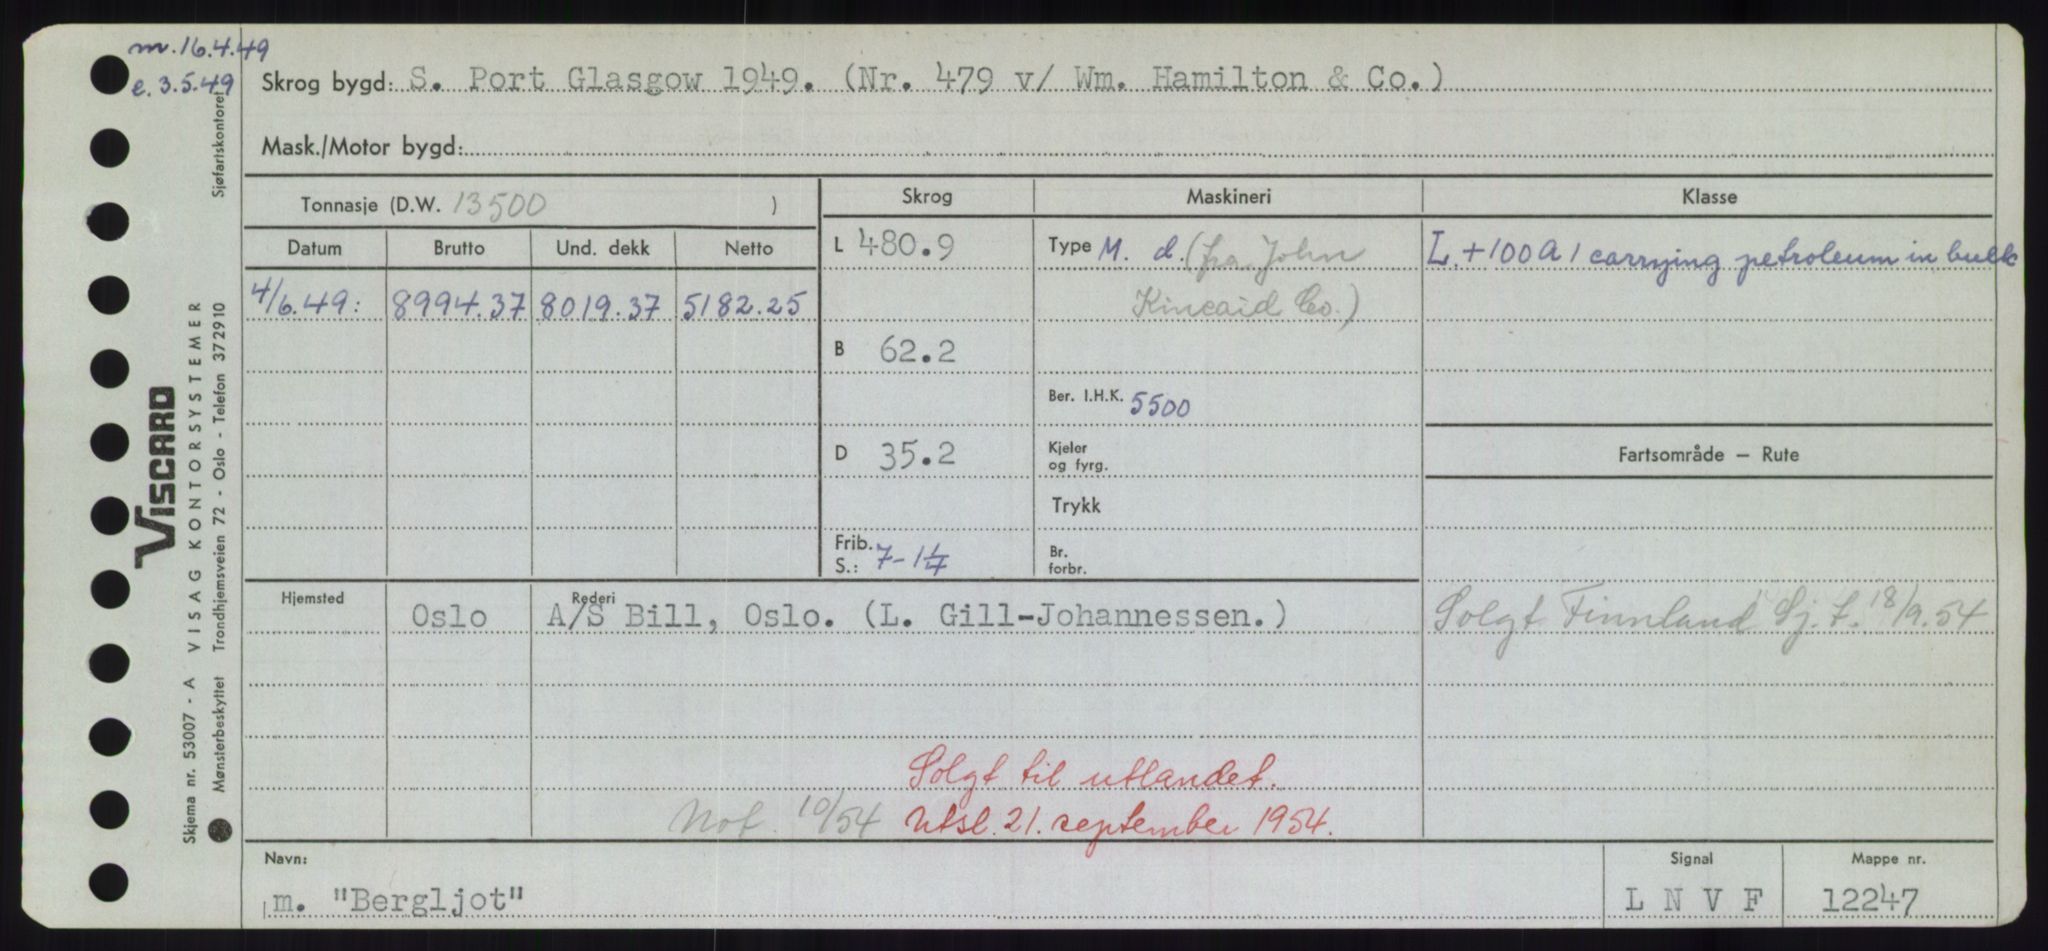 m. 16.4.49
e. 3.5.49
Skrog bygd: S. Port Glasgow 1949. (Nr. 479 v/ Wm. Hamilton & Co.)
Mask./Motor bygd:
Tonnasje (D.W. 13500 )
Skrog Maskineri Klasse
Datum Brutto Und. dekk Netto
L 480.9 Type M. d. (fra John L. +100 A 1 carrying petroleum in bulk
4/6.49: 8994.37 8019.37 5182.25 Kincaid Co.)
B 62.2
Ber. I.H.K. 5500
D 35.2 Kjeler og fyrg. Fartsområde – Rute
Trykk
Frib. S.: 7-1¼ Br. forbr.
Hjemsted Oslo Rederi A/S Bill, Oslo. (L. Gill-Johannessen.) Solgt Finnland Sj. t. 18/9.54
Solgt til utlandet.
Not. 10/54 Utsl. 21. september 1954.
Navn: Signal Mappe nr.
m. "Bergljot" L N V F 12247
Viscard
VISAG KONTORSYSTEMER
Skjema nr. 53007 - A
Mønsterbeskyttet Trondhjemsveien 72 - Oslo - Telefon 372910 Sjøfartskontoret